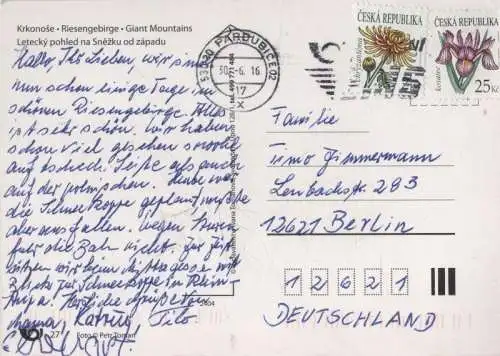 Krkonoše • Riesengebirge • Giant Mountains
Letecký pohled na Sněžku od západu
Hallo, Ihr Lieben, wir sind
nun schon einige Tage im
schönen Riesengebirge. Alles
ist sehr schön. Wir haben
schon viel gesehen sowohl
auf tschech. Seite als auch
auf der polnischen. Heute war
die Schneekoppe geplant, musste
aber ausfallen. Wegen Sturm
fuhr die Bahn nicht. Zur Zeit
sitzen wir beim
Blick zur Schneekoppe im
Herzliche Grüße
Katrin, Tilo
27
Foto © Petr Toman
530 20 PARDUBICE 02
30.-6. 16
17
x
ČESKÁ REPUBLIKA
ČESKÁ REPUBLIKA
kosatec
25 Kč
Familie
Timo Zimmermann
Lenbachstr. 283
12621 Berlin
1 2 6 2 1
DEUTSCHLAND